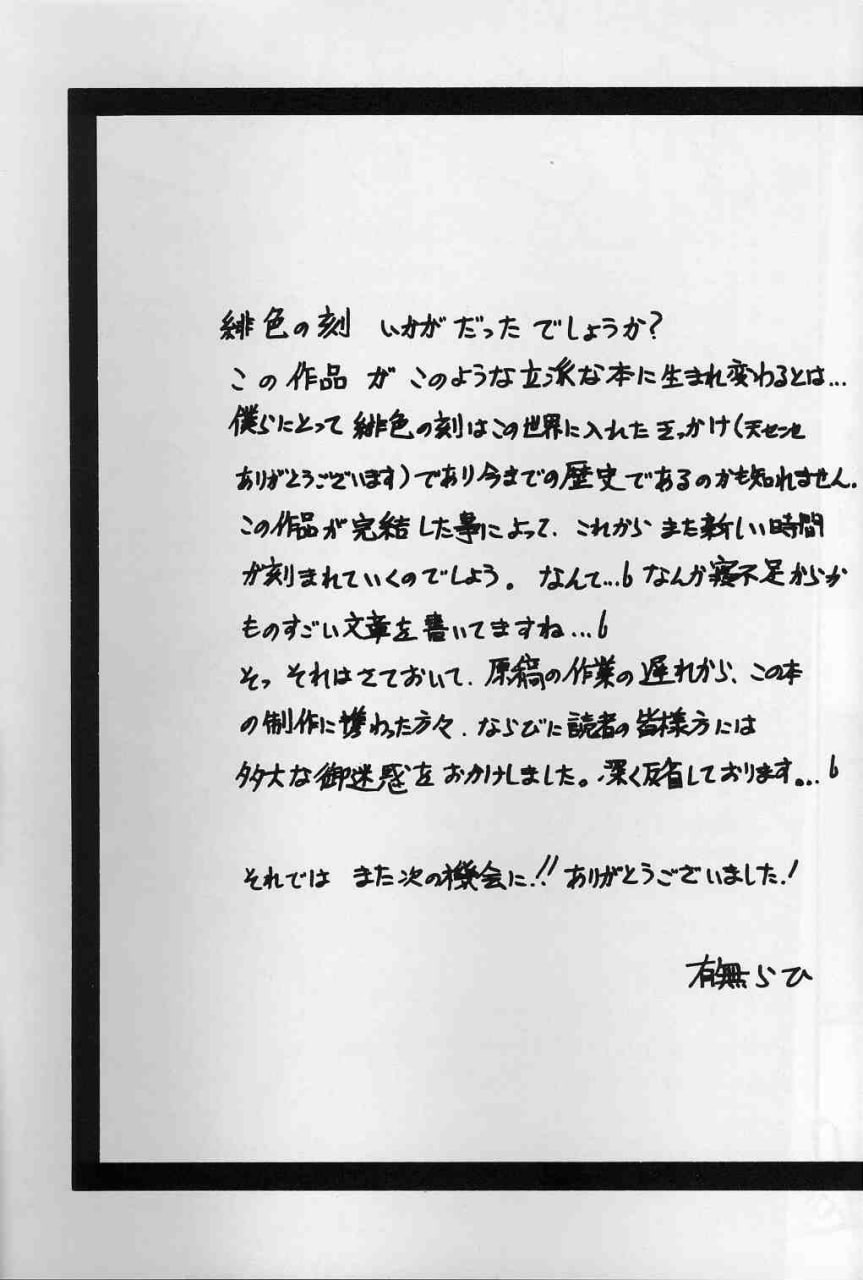 緋色の刻 いかがだったでしょうか?
この作品が このような立派な本に生まれ変わるとは...
僕らにとって 緋色の刻はこの世界に入れたきっかけ(天センセ
ありがとうございます)であり今までの歴史であるのかも知れません。
この作品が完結した事によって、これから また新しい時間
が刻まれていくのでしょう。 なんて...6 なんか寝不足からか
ものすごい文章を書いてますね...6
そっ それはさておいて、原稿の作業の遅れから、この本
の制作に携わった方々、ならびに読者の皆様方には
多大な御迷惑をおかけしました。深く反省しております。..6
それでは また次の機会に!! ありがとうございました!
有無らひ